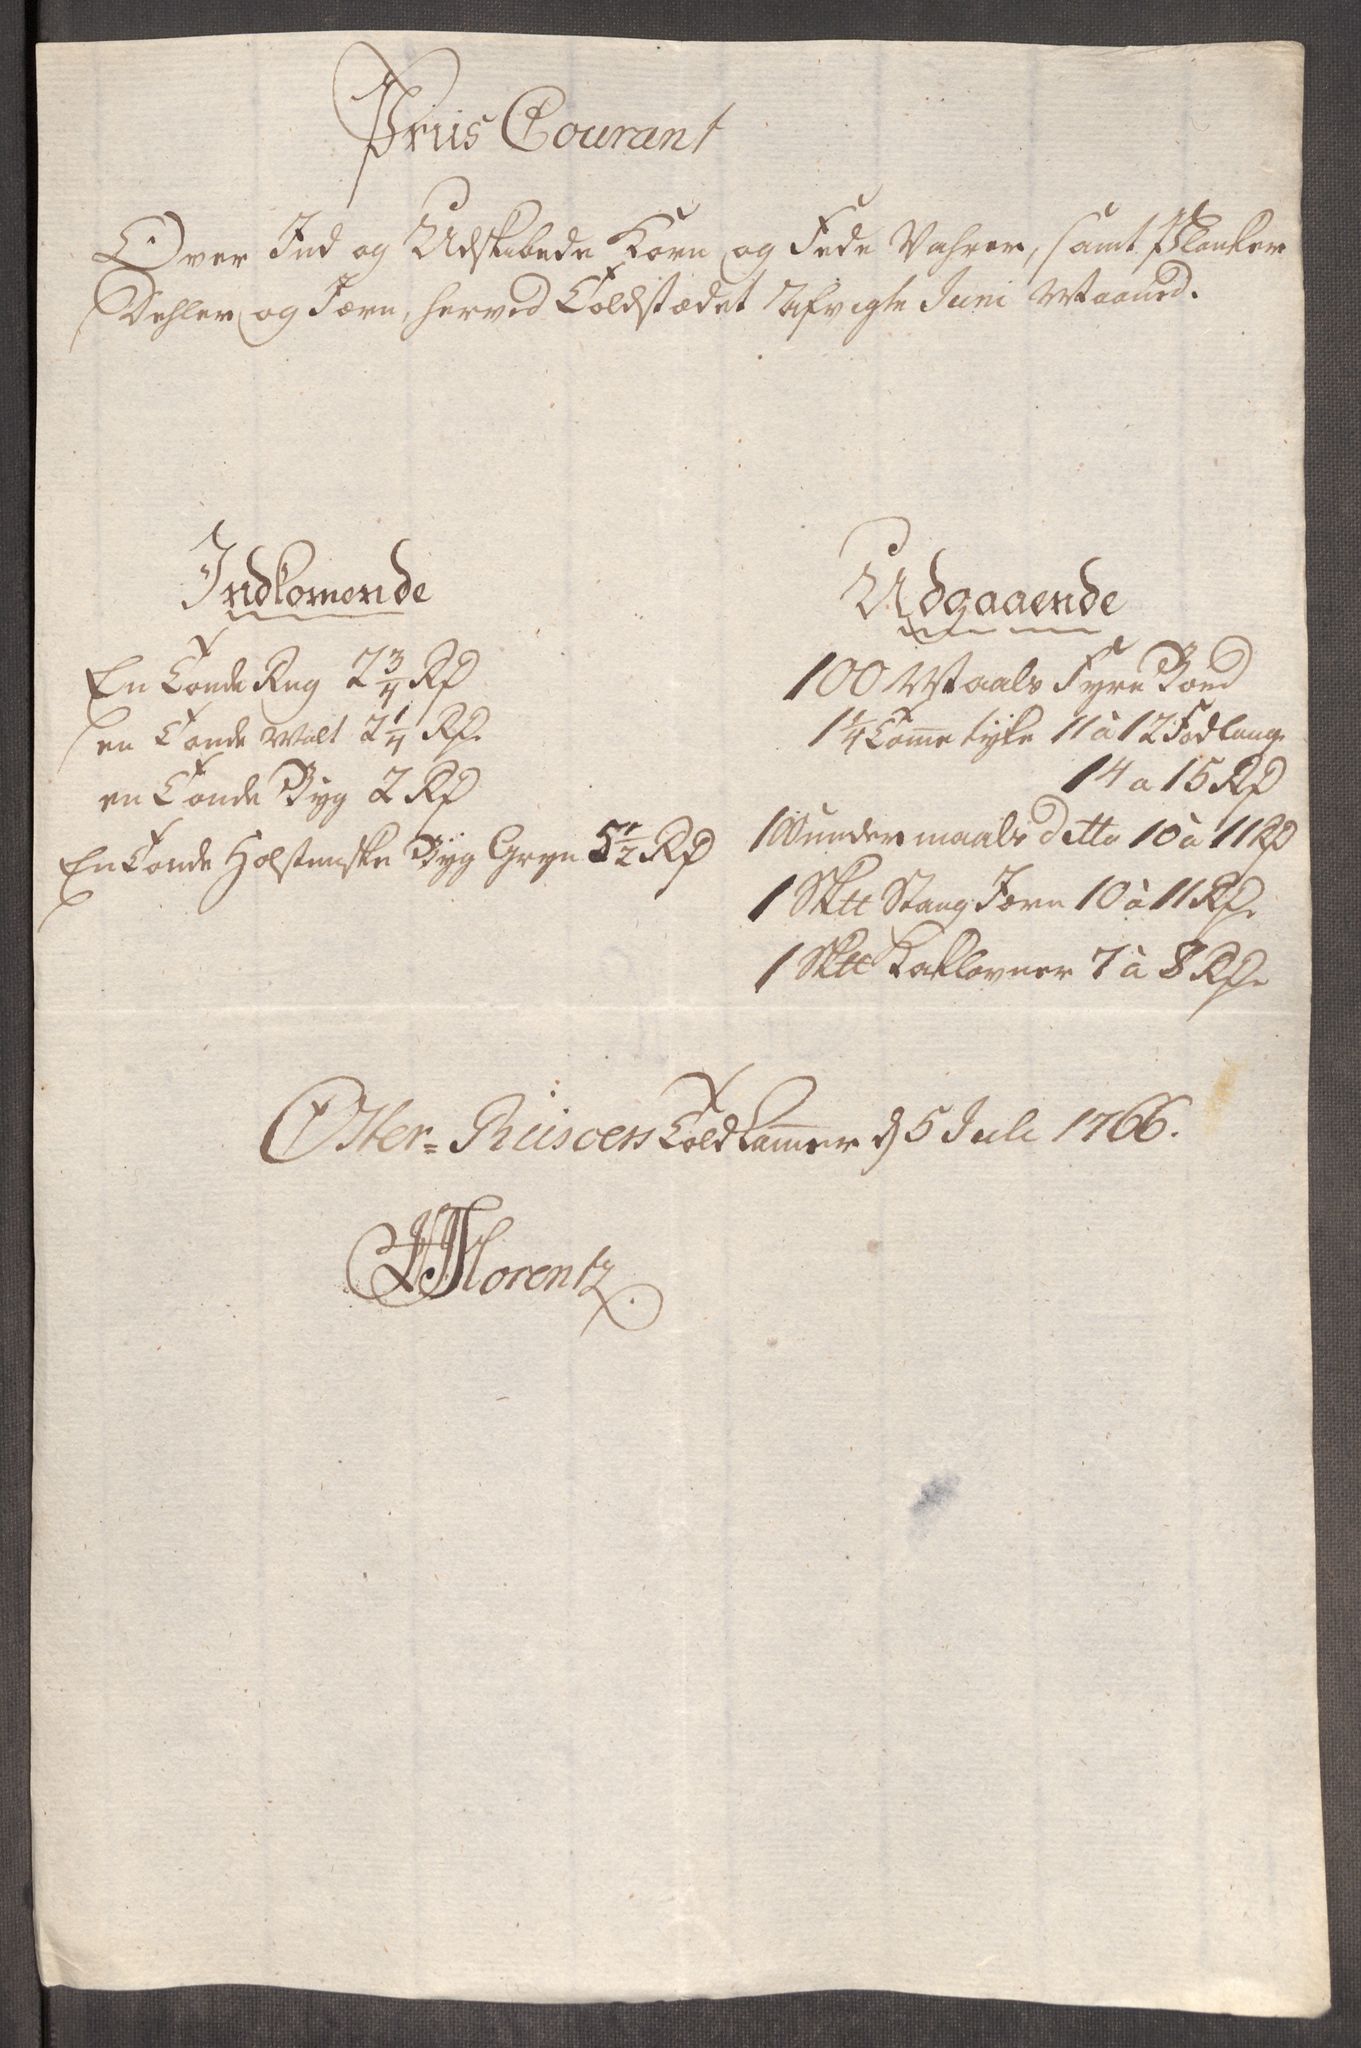 Priis Courant
Over Ind og Udskibede Korn og Fede Vahrer, samt Planker
Dehler og Jern, herved Toldstædet udi afvigte Juni Maaned.
Indkomende
En Tonde Rug 2 3/4 Rd
en Tonde Malt 2 1/4 Rd.
en Tonde Byg 2 Rd
En Tonde Holstenske Byg Gryn 5 1/2 Rd
Udgaaende
100 Maals Fyre Bord
1 1/4 Tomme tyke 11 à 12 Fod lange
14 a 15 Rd
100 under maals ditto 10 à 11 Rd
1 Sk℔ Stang Jern 10 à 11 Rd.
1 Sk℔ Kaklovner 7 à 8 Rd.
Öster=Riisöers Toldkammer d 5 Juli 1766.
Florentz